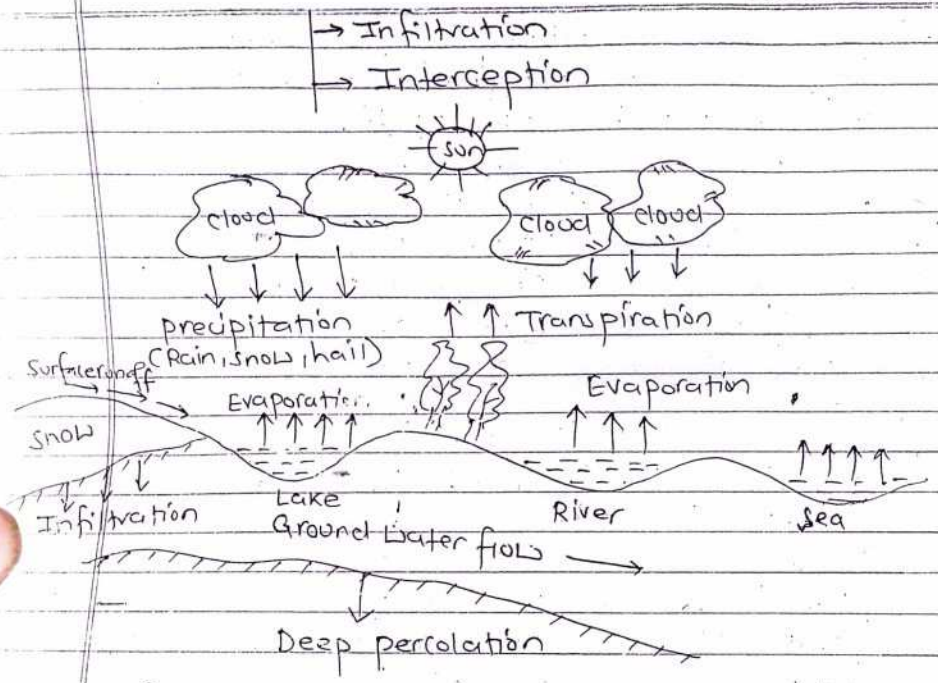 → Infiltration
→ Interception
sun
cloud
cloud
cloud
precipitation
(Rain, snow, hail)
Transpiration
Surface runoff
Evaporation
Evaporation
snow
Infiltration
Lake
River
Sea
Ground water flow →
Deep percolation